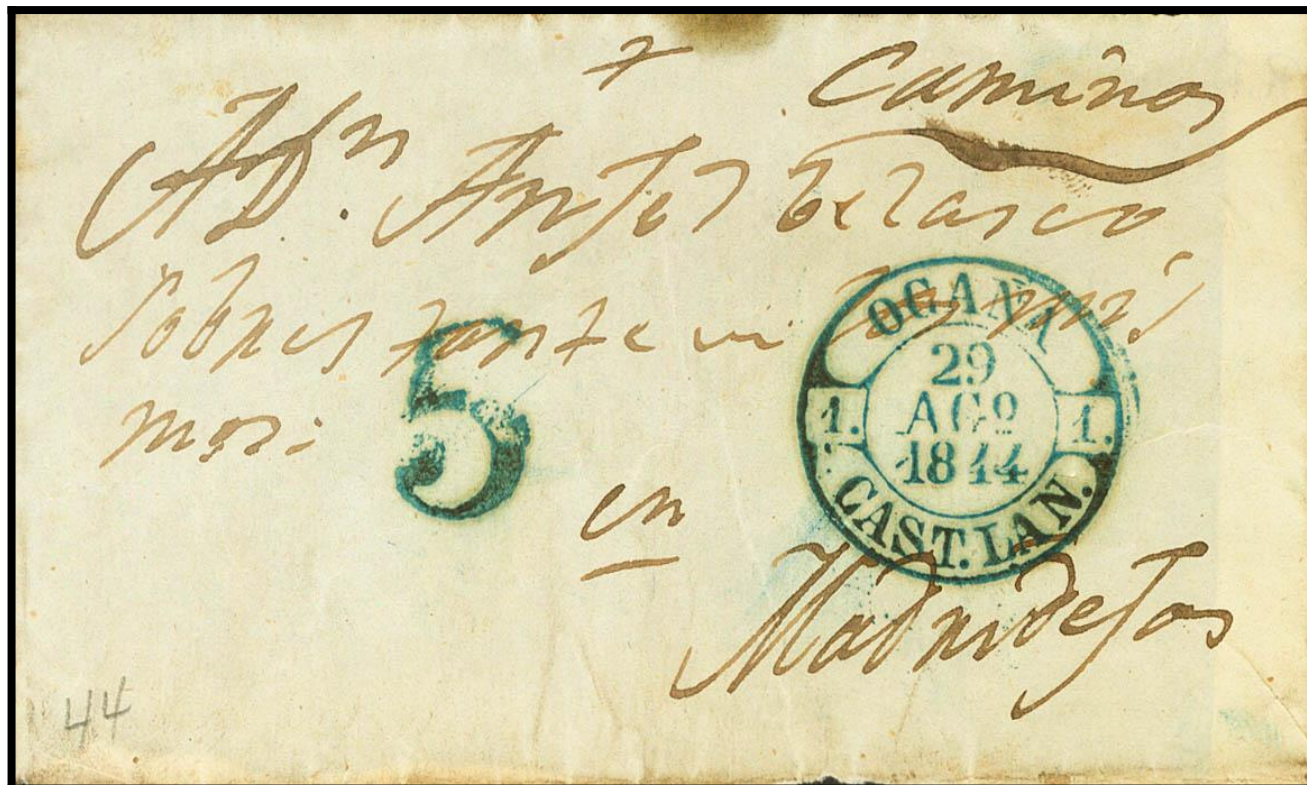 Caminos
A Dn. Anjel belasco
Sobrestante en los mis
mos:
5
OCAÑA
29
AGO
1844
1. 1.
CAST.LAN.
en
Madridejos
44